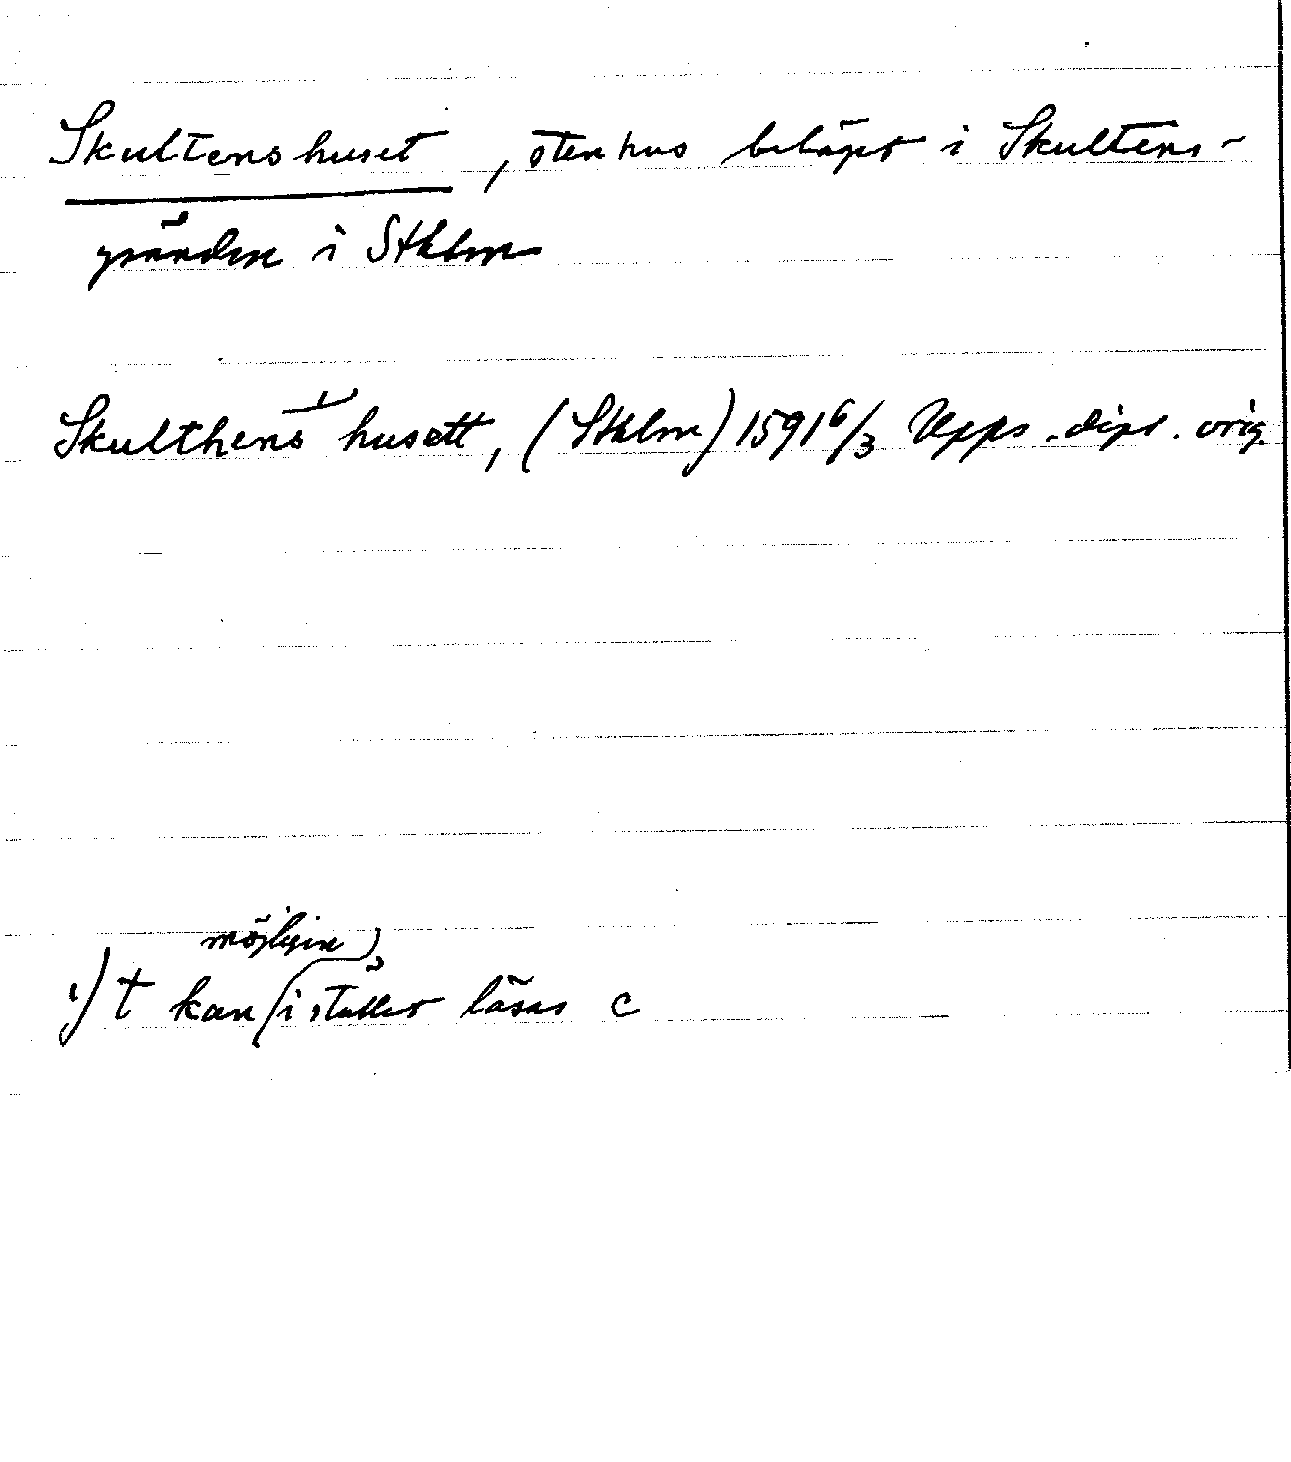 Skultenshuset, stenhus beläget i Skultens-
gränden i Sthlm
Skulthens¹⁾ husett, (Sthlm) 1591 6/3 Upps. dipl. orig
möjligen
1) t kan i stället läsas c